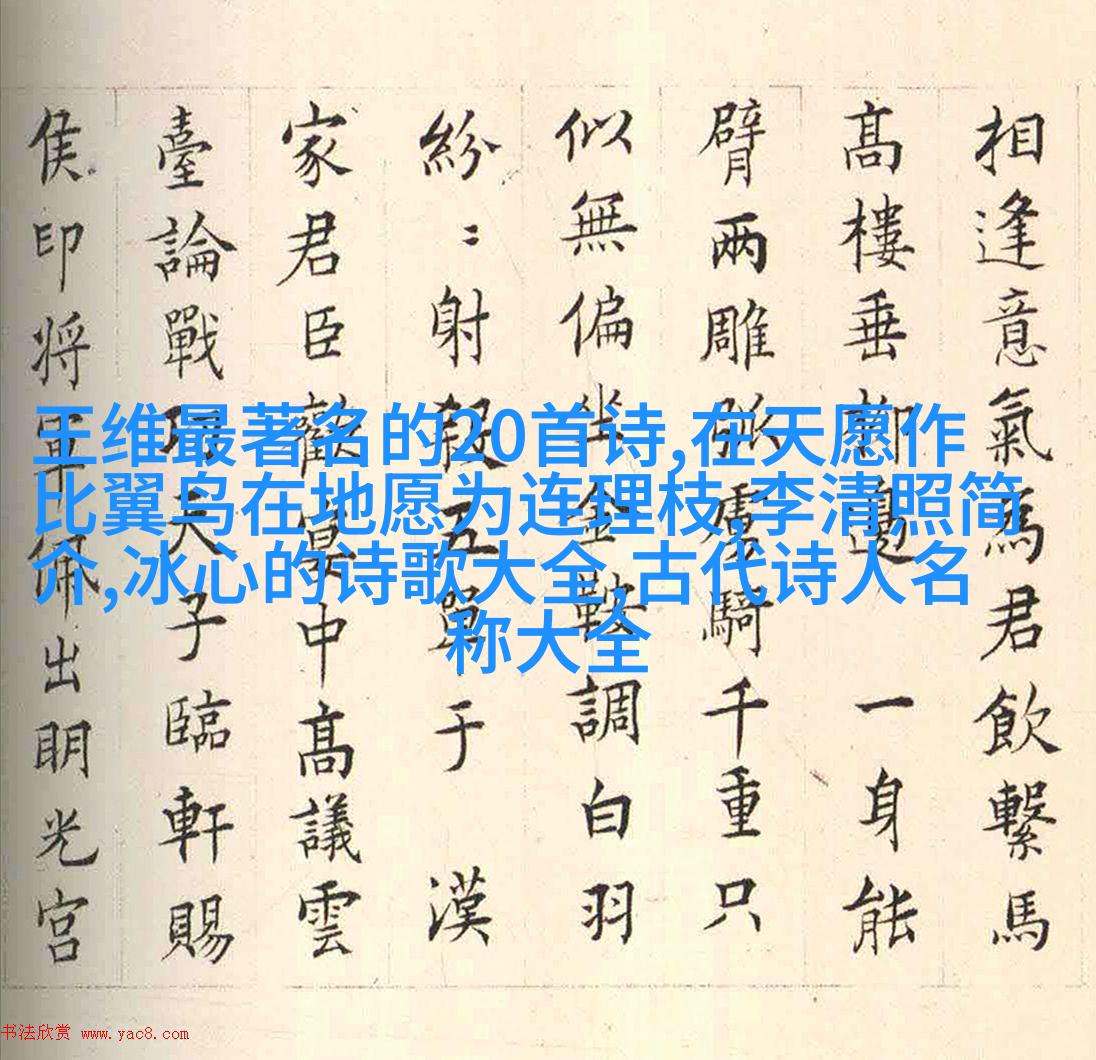 相逢意氣為君飲繫馬
髙樓垂柳邊 一身能
臂兩雕弧虜騎千重只
似無偏坐金鞍調白羽
紛〻射殺五單于 漢
家君臣歡宴中髙議雲
臺論戰功天子臨軒賜
侯印将軍佩出明光宮
王维最著名的20首诗,在天愿作
比翼鸟在地愿为连理枝,李清照简
介,冰心的诗歌大全,古代诗人名
称大全
书法欣赏 www.yac8.com